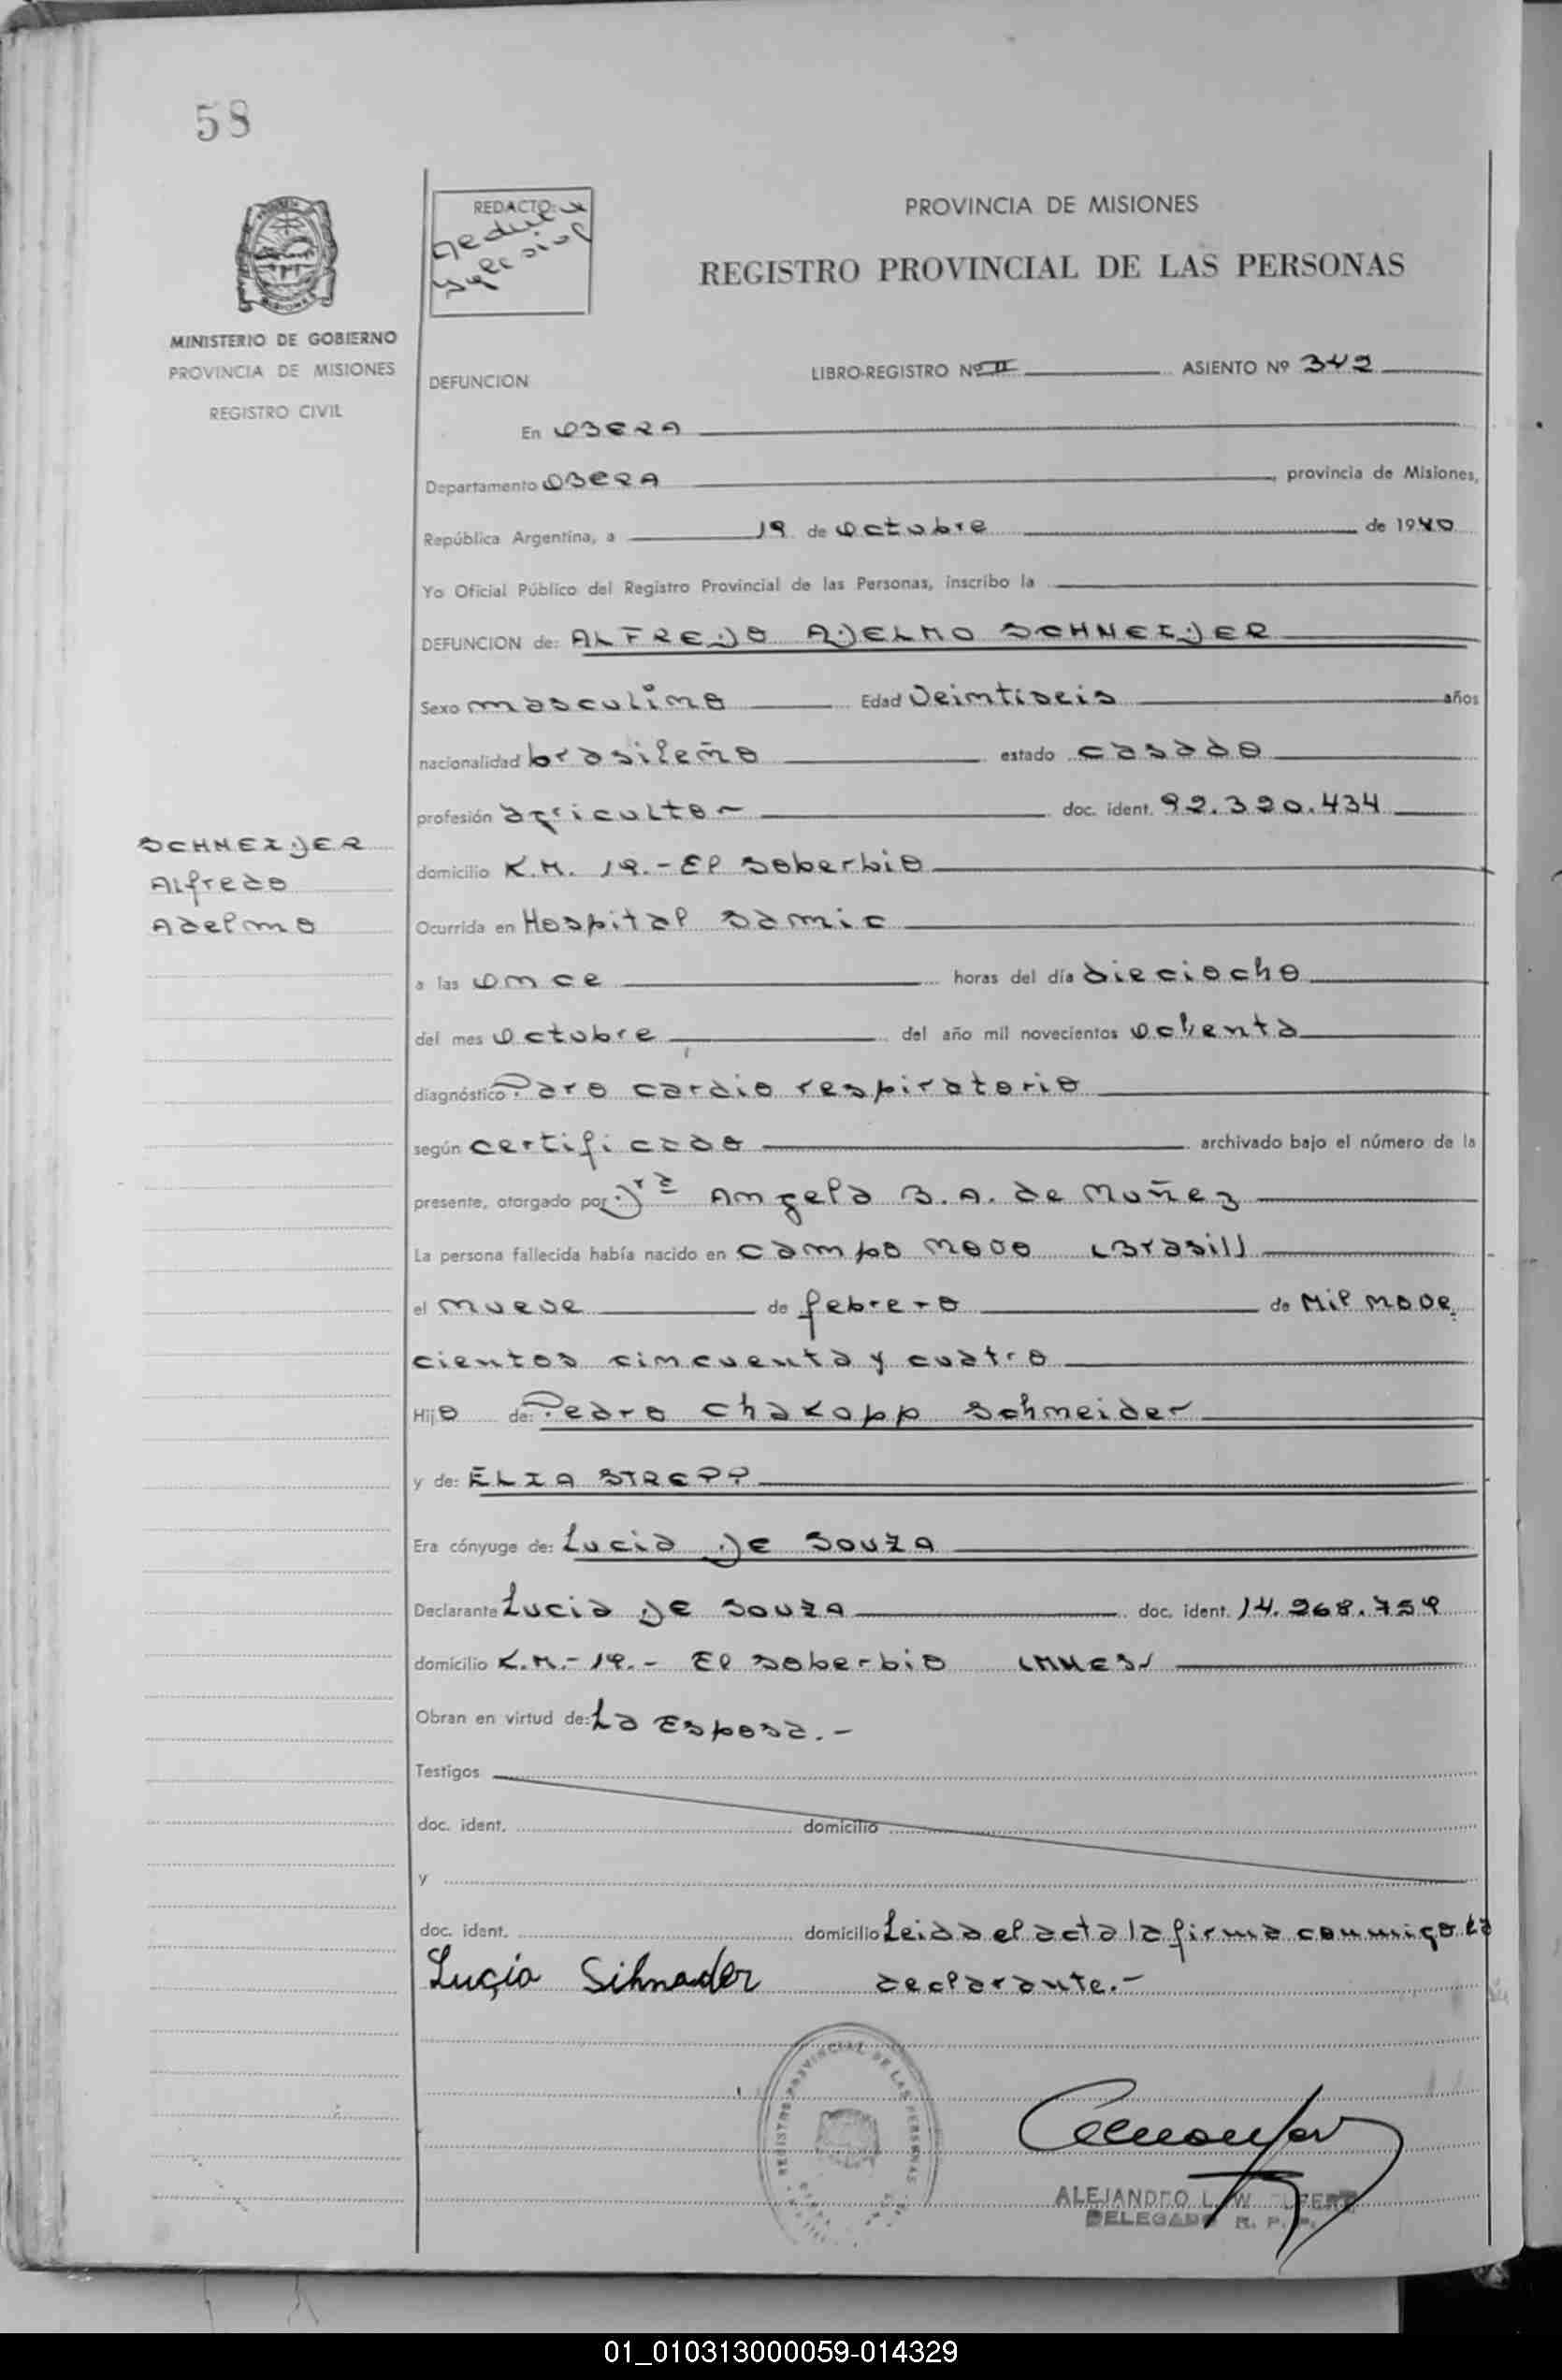 58
REDACTO:
PROVINCIA DE MISIONES
REGISTRO PROVINCIAL DE LAS PERSONAS
MINISTERIO DE GOBIERNO
PROVINCIA DE MISIONES
REGISTRO CIVIL
DEFUNCION LIBRO-REGISTRO Nº II ASIENTO Nº 342
En OBERA
Departamento OBERA, provincia de Misiones,
República Argentina, a 19 de octubre de 1980
Yo Oficial Público del Registro Provincial de las Personas, inscribo la
DEFUNCION de: ALFREDO ADELMO SCHNEIDER
Sexo masculino Edad Veintiseis años
nacionalidad brasileño estado casado
profesión agricultor doc. ident. 92.320.434
SCHNEIDER
Alfredo
Adelmo
domicilio K.M. 19.- El Soberbio
Ocurrida en Hospital Samic
a las once horas del día dieciocho
del mes octubre del año mil novecientos ochenta
diagnóstico: Paro cardio respiratorio
según certificado archivado bajo el número de la
presente, otorgado por Drª Angela B. A. de Nuñez
La persona fallecida había nacido en Campo Novo (Brasil)
el nueve de febrero de Mil nove
cientos cincuenta y cuatro
Hijo de: Pedro Chakopp Schneider
y de: ELIA STREPP
Era cónyuge de: Lucia DE SOUZA
Declarante Lucia DE SOUZA doc. ident. 14.268.759
domicilio K.M.- 19.- El Soberbio (MNES)
Obran en virtud de: La Esposa.-
Testigos
doc. ident. domicilio
y
doc. ident. domicilio Leida el acta la firma conmigo la
Lucia Sihnader declarante.-
REGISTRO PROVINCIAL DE LAS PERSONAS
ALEJANDRO L.
DELEGADO R. P. P.
01_010313000059-014329